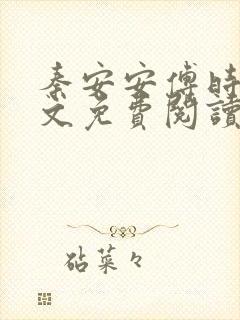 秦安安傅时
文免費閱讀
砧菜々